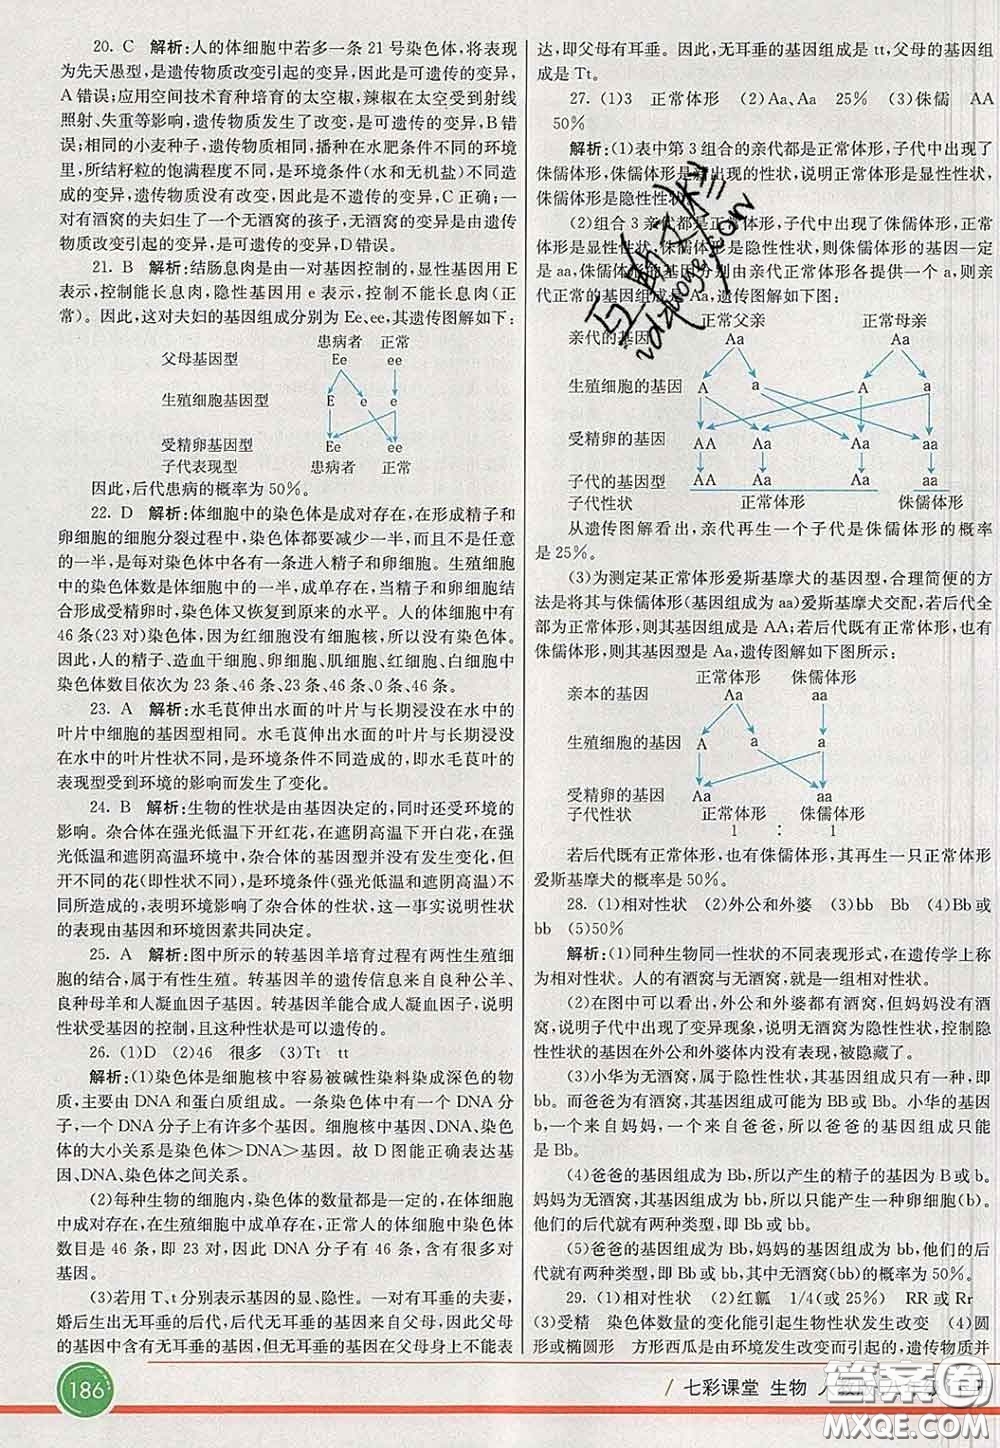 20. C 解析:人的体细胞中若多一条 21 号染色体,将表现
为先天愚型,是遗传物质改变引起的变异,是可遗传的变异,
A 错误;应用空间技术育种培育的太空椒,辣椒在受到射线
照射、失重等影响,遗传物质发生了改变,是可遗传的变异,B 错
误;相同的小麦种子,遗传物质相同,播种在水肥条件不同的环境
里,所结籽粒的饱满程度不同,是环境条件(水和无机盐)不同造
成的变异,遗传物质没有改变,因此是不遗传的变异,C 正确;一
对有酒窝的夫妇生了一个无酒窝的孩子,无酒窝的变异是由遗传
物质改变引起的变异,是可遗传的变异,D 错误。
21. B 解析:结肠息肉是由一对基因控制的,显性基因用 E
表示,控制能长息肉,隐性基因用 e 表示,控制不能长息肉(正
常)。因此,这对夫妇的基因组成分别为 Ee、ee,其遗传图解如下:
患病者 正常
父母基因型 Ee ee
生殖细胞基因型 E e e
受精卵基因型 Ee ee
子代表现型 患病者 正常
因此,后代患病的概率为 50%。
22. D 解析:体细胞中的染色体是成对存在,在形成精子和
卵细胞的细胞分裂过程中,染色体都要减少一半,而且不是任意
的一半,是每对染色体中各有一条进入精子和卵细胞。生殖细胞
中的染色体数是体细胞中的一半,成单存在,当精子和卵细胞结
合形成受精卵时,染色体又恢复到原来的水平。人的体细胞中有
46 条(23 对)染色体,因为红细胞没有细胞核,所以没有染色体。
因此,人的精子、造血干细胞、卵细胞、肌细胞、红细胞、白细胞中
染色体数目依次为 23 条、46 条、23 条、46 条、0 条、46 条。
23. A 解析:水毛茛伸出水面的叶片与长期浸没在水中的
叶片中细胞的基因型相同。水毛茛伸出水面的叶片与长期浸没
在水中的叶片性状不同,是环境条件不同造成的,即水毛茛叶的
表现型受到环境的影响而发生了变化。
24. B 解析:生物的性状是由基因决定的,同时还受环境的
影响。杂合体在强光低温下开红花,在遮阴高温下开白花,在强
光低温和遮阴高温环境中,杂合体的基因型并没有发生变化,但
开不同的花(即性状不同),是环境条件(强光低温和遮阴高温)不
同所造成的,表明环境影响了杂合体的性状,这一事实说明性状
的表现由基因和环境因素共同决定。
25. A 解析:图中所示的转基因羊培育过程有两性生殖细
胞的结合,属于有性生殖。转基因羊的遗传信息来自良种公羊、
良种母羊和人凝血因子基因。转基因羊能合成人凝血因子,说明
性状受基因的控制,且这种性状是可以遗传的。
26. (1)D (2)46 很多 (3)Tt tt
解析:(1)染色体是细胞核中容易被碱性染料染成深色的物
质,主要由 DNA 和蛋白质组成。一条染色体中有一个 DNA 分
子,一个 DNA 分子上有许多个基因。细胞核中基因、DNA、染色
体的大小关系是染色体>DNA>基因。故 D 图能正确表达基
因、DNA、染色体之间关系。
(2)每种生物的细胞内,染色体的数量都是一定的,在体细胞
中成对存在,在生殖细胞中成单存在,正常人的体细胞中染色体
数目是 46 条,即 23 对,因此 DNA 分子有 46 个,含有很多对
基因。
(3)若用 T、t 分别表示基因的显、隐性。一对有耳垂的夫妻,
婚后生出无耳垂的后代,后代无耳垂的基因来自父母,因此父母
的基因中含有无耳垂的基因,但无耳垂的基因在父母身上不能表
达,即父母有耳垂。因此,无耳垂的基因组成是 tt,父母的基因组
成是 Tt。
27. (1)3 正常体形 (2)Aa、Aa 25% (3)侏儒 AA
50%
解析:(1)表中第 3 组合的亲代都是正常体形,子代中出现了
侏儒体形,侏儒体形是新出现的性状,说明正常体形是显性性状,
侏儒体形是隐性性状。
(2)组合 3 亲代都是正常体形,子代中出现了侏儒体形,正常
体形是显性性状,侏儒体形是隐性性状,则侏儒体形的基因一定
是 aa,侏儒体形的基因分别由亲代正常体形各提供一个 a,则亲
代正常的基因组成是 Aa,遗传图解如下图:
正常父亲 正常母亲
亲代的基因 Aa Aa
生殖细胞的基因 A a A a
受精卵的基因 AA Aa Aa aa
子代的基因型 AA Aa Aa aa
子代性状 正常体形 侏儒体形
从遗传图解看出,亲代再生一个子代是侏儒体形的概率
是 25%。
(3)为测定某正常体形爱斯基摩犬的基因型,合理简便的方
法是将其与侏儒体形(基因组成为 aa)爱斯基摩犬交配,若后代全
部为正常体形,则其基因组成是 AA;若后代既有正常体形,也有
侏儒体形,则其基因型是 Aa,遗传图解如下图所示:
正常体形 侏儒体形
亲本的基因 Aa aa
生殖细胞的基因 A a a
受精卵的基因 Aa aa
子代性状 正常体形 侏儒体形
1 : 1
若后代既有正常体形,也有侏儒体形,其再生一只正常体形
爱斯基摩犬的概率是 50%。
28. (1)相对性状 (2)外公和外婆 (3)bb Bb (4)Bb或
bb (5)50%
解析:(1)同种生物同一性状的不同表现形式,在遗传学上称
为相对性状。人的有酒窝与无酒窝,就是一组相对性状。
(2)在图中可以看出,外公和外婆都有酒窝,但妈妈没有酒
窝,说明子代中出现了变异现象,说明无酒窝为隐性性状,控制隐
性性状的基因在外公和外婆体内没有表现,被隐藏了。
(3)小华为无酒窝,属于隐性性状,其基因组成只有一种,即
bb。而爸爸为有酒窝,其基因组成可能为 BB 或 Bb。小华的基因
b,一个来自妈妈,一个来自爸爸,所以爸爸的基因组成只能
是 Bb。
(4)爸爸的基因组成为 Bb,所以产生的精子的基因为 B或 b。
妈妈为无酒窝,其基因组成为 bb,所以只能产生一种卵细胞(b)。
他们的后代就有两种类型,即 Bb 或 bb。
(5)爸爸的基因组成为 Bb,妈妈的基因组成为 bb,他们的后
代就有两种类型,即 Bb 或 bb,其中无酒窝(bb)的概率为 50%。
29. (1)相对性状 (2)红瓤 1/4(或 25%) RR 或 Rr
(3)受精 染色体数量的变化能引起生物性状发生改变 (4)圆
形或椭圆形 方形西瓜是由环境发生改变而引起的,遗传物质并
186
七彩课堂 生物 人教
答案圈
MXQE.COM